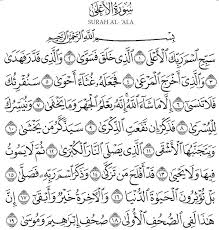 سُورَةُ الأَعْلَىٰ
SURAH AL- 'ALA
بِسْمِ اللَّهِ الرَّحْمَٰنِ الرَّحِيمِ
سَبِّحِ اسْمَ رَبِّكَ الْأَعْلَى ١ الَّذِي خَلَقَ فَسَوَّىٰ ٢ وَالَّذِي قَدَّرَ فَهَدَىٰ
٣ وَالَّذِي أَخْرَجَ الْمَرْعَىٰ ٤ فَجَعَلَهُ غُثَاءً أَحْوَىٰ ٥ سَنُقْرِئُكَ
فَلَا تَنسَىٰ ٦ إِلَّا مَا شَاءَ اللَّهُ إِنَّهُ يَعْلَمُ الْجَهْرَ وَمَا يَخْفَىٰ ٧ وَنُيَسِّرُكَ
لِلْيُسْرَىٰ ٨ فَذَكِّرْ إِن نَّفَعَتِ الذِّكْرَىٰ ٩ سَيَذَّكَّرُ مَن يَخْشَىٰ ١٠
وَيَتَجَنَّبُهَا الْأَشْقَى ١١ الَّذِي يَصْلَى النَّارَ الْكُبْرَىٰ ١٢ ثُمَّ لَا يَمُوتُ
فِيهَا وَلَا يَحْيَىٰ ١٣ قَدْ أَفْلَحَ مَن تَزَكَّىٰ ١٤ وَذَكَرَ اسْمَ رَبِّهِ فَصَلَّىٰ ١٥
بَلْ تُؤْثِرُونَ الْحَيَاةَ الدُّنْيَا ١٦ وَالْآخِرَةُ خَيْرٌ وَأَبْقَىٰ ١٧ إِنَّ
هَٰذَا لَفِي الصُّحُفِ الْأُولَىٰ ١٨ صُحُفِ إِبْرَاهِيمَ وَمُوسَىٰ ١٩